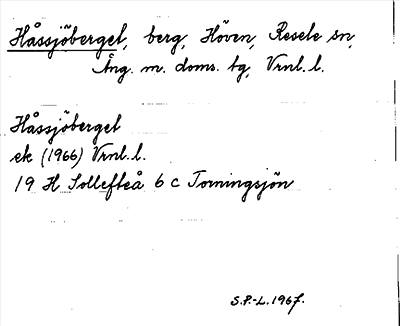 Håssjöberget, berg, Höven, Resele sn,
Ång. m. doms. bg, Vrnl. l.
Håssjöberget
ek (1966) Vrnl. l.
19 H Sollefteå 6 c Torningsjön
S.P.-L. 1967.